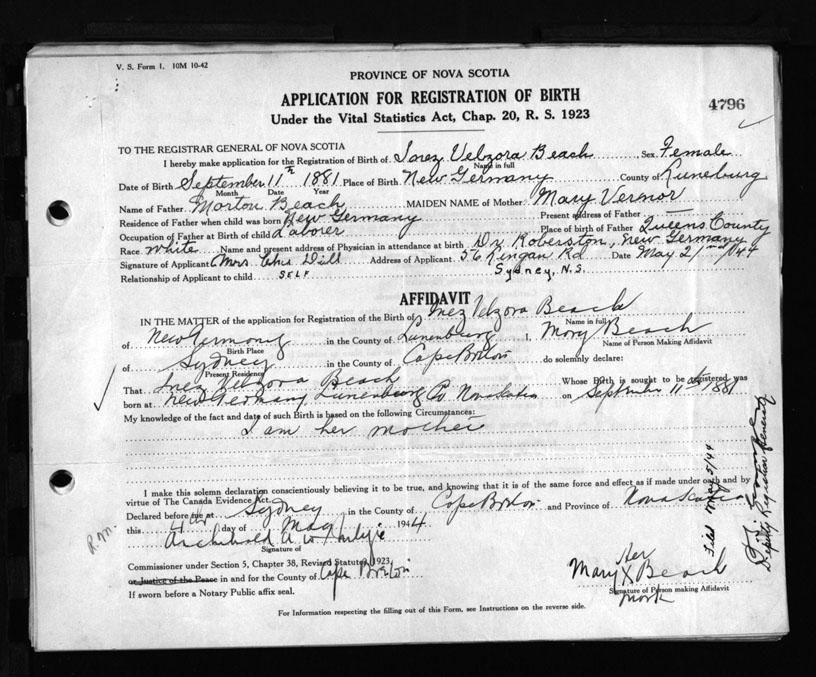 V. S. Form 1. 10M 10-42
PROVINCE OF NOVA SCOTIA
APPLICATION FOR REGISTRATION OF BIRTH
Under the Vital Statistics Act, Chap. 20, R. S. 1923
4796
TO THE REGISTRAR GENERAL OF NOVA SCOTIA
I hereby make application for the Registration of Birth of Inez Velzora Beach Sex Female
Name in full
Date of Birth September 11th 1881 Place of Birth New Germany County of Lunenburg
Month Date Year
Name of Father Morton Beach MAIDEN NAME of Mother Mary Vernor
Residence of Father when child was born New Germany Present address of Father —
Occupation of Father at Birth of child Laborer Place of birth of Father Queens County
Race White Name and present address of Physician in attendance at birth Dr. Roberston, New Germany
Signature of Applicant Mrs. Chis Dill Address of Applicant 56 Kingan Rd Date May 2nd 1944
Relationship of Applicant to child SELF Sydney, N.S.
AFFIDAVIT
IN THE MATTER of the application for Registration of the Birth of Inez Velzora Beach
Name in full
of New Germany in the County of Lunenburg I, Mary Beach
Birth Place Name of Person Making Affidavit
of Sydney in the County of Cape Breton do solemnly declare:
Present Residence
That Inez Velzora Beach Whose Birth is sought to be registered was
born at New Germany Lunenburg Co Nova Scotia on September 11th 1881
My knowledge of the fact and date of such Birth is based on the following Circumstances:
I am her mother
I make this solemn declaration conscientiously believing it to be true, and knowing that it is of the same force and effect as if made under oath and by
virtue of The Canada Evidence Act.
Declared before me at Sydney in the County of Cape Breton and Province of Nova Scotia
this 4th day of May 1944.
Archibald A. W.
Signature of
Commissioner under Section 5, Chapter 38, Revised Statutes, 1923,
or Justice of the Peace in and for the County of Cape Breton
If sworn before a Notary Public affix seal.
Her
Mary X Beach
Signature of Person making Affidavit
Mark
For Information respecting the filling out of this Form, see Instructions on the reverse side.
Filed May 5/44
Deputy Registrar General